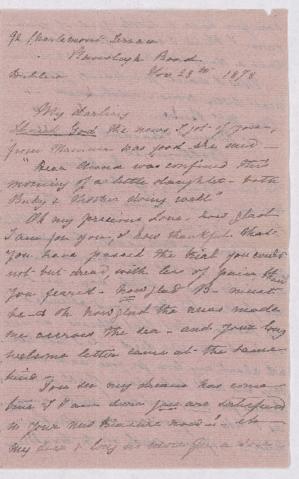 Charlemont Terrace
Road
Dublin Nov. 28th 1878
My darling
Thank God the news I got of you,
from Mamma was good she said -
"Dear was confined this
morning of a little daughter - both
Baby & Mother doing well"
Oh my precious Love - how glad
I am for you, & how thankful that
you have passed the trial you could
not but dread, with less of pain than
you feared - how glad must
be - & oh how glad the news made
me across the sea - and your long
welcome letter came at the same
time
You see my dream has come
true & I am sure you are satisfied
in your new treasure now! -
my dear I long